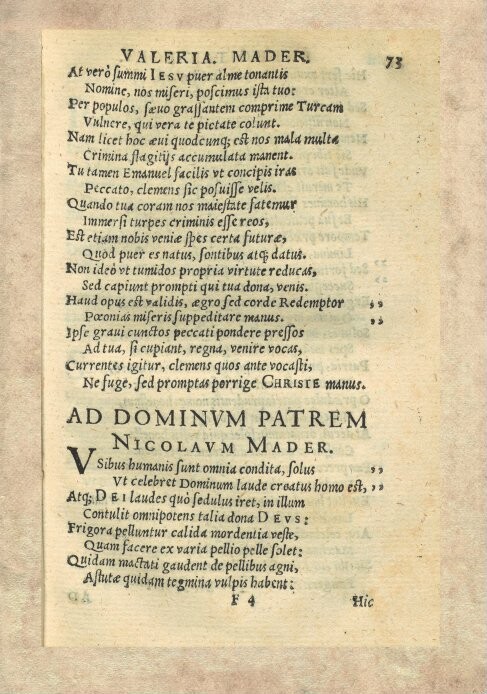 VALERIA. MADER. 73
At verò summi IESV puer alme tonantis
Nomine, nos miseri, poscimus ista tuo:
Per populos, sæuo grassantem comprime Turcam
Vulnere, qui vera te pietate colunt.
Nam licet hoc æui quodcunq; est nos mala multa
Crimina flagitijs accumulata manent.
Tu tamen Emanuel facilis vt concipis iras
Peccato, clemens sic posuisse velis.
Quando tua coram nos maiestate fatemur
Immersi turpes criminis esse reos,
Est etiam nobis veniæ spes certa futuræ,
Quod puer es natus, sontibus atq; datus.
Non ideò vt tumidos propria virtute reducas,
Sed capiunt prompti qui tua dona, venis.
Haud opus est validis, ægro sed corde Redemptor ,,
Pœonias miseris suppeditare manus. ,,
Ipse graui cunctos peccati pondere pressos
Ad tua, si cupiant, regna, venire vocas,
Currentes igitur, clemens quos ante vocasti,
Ne fuge, sed promptas porrige CHRISTE manus.
AD DOMINVM PATREM
NICOLAVM MADER.
VSibus humanis sunt omnia condita, solus ,,
Vt celebret Dominum laude creatus homo est, ,,
Atq; DEI laudes quò sedulus iret, in illum
Contulit omnipotens talia dona DEVS:
Frigora pelluntur calida mordentia veste,
Quam facere ex varia pellio pelle solet:
Quidam mactati gaudent de pellibus agni,
Astutæ quidam tegmina vulpis habent:
F 4 Hic